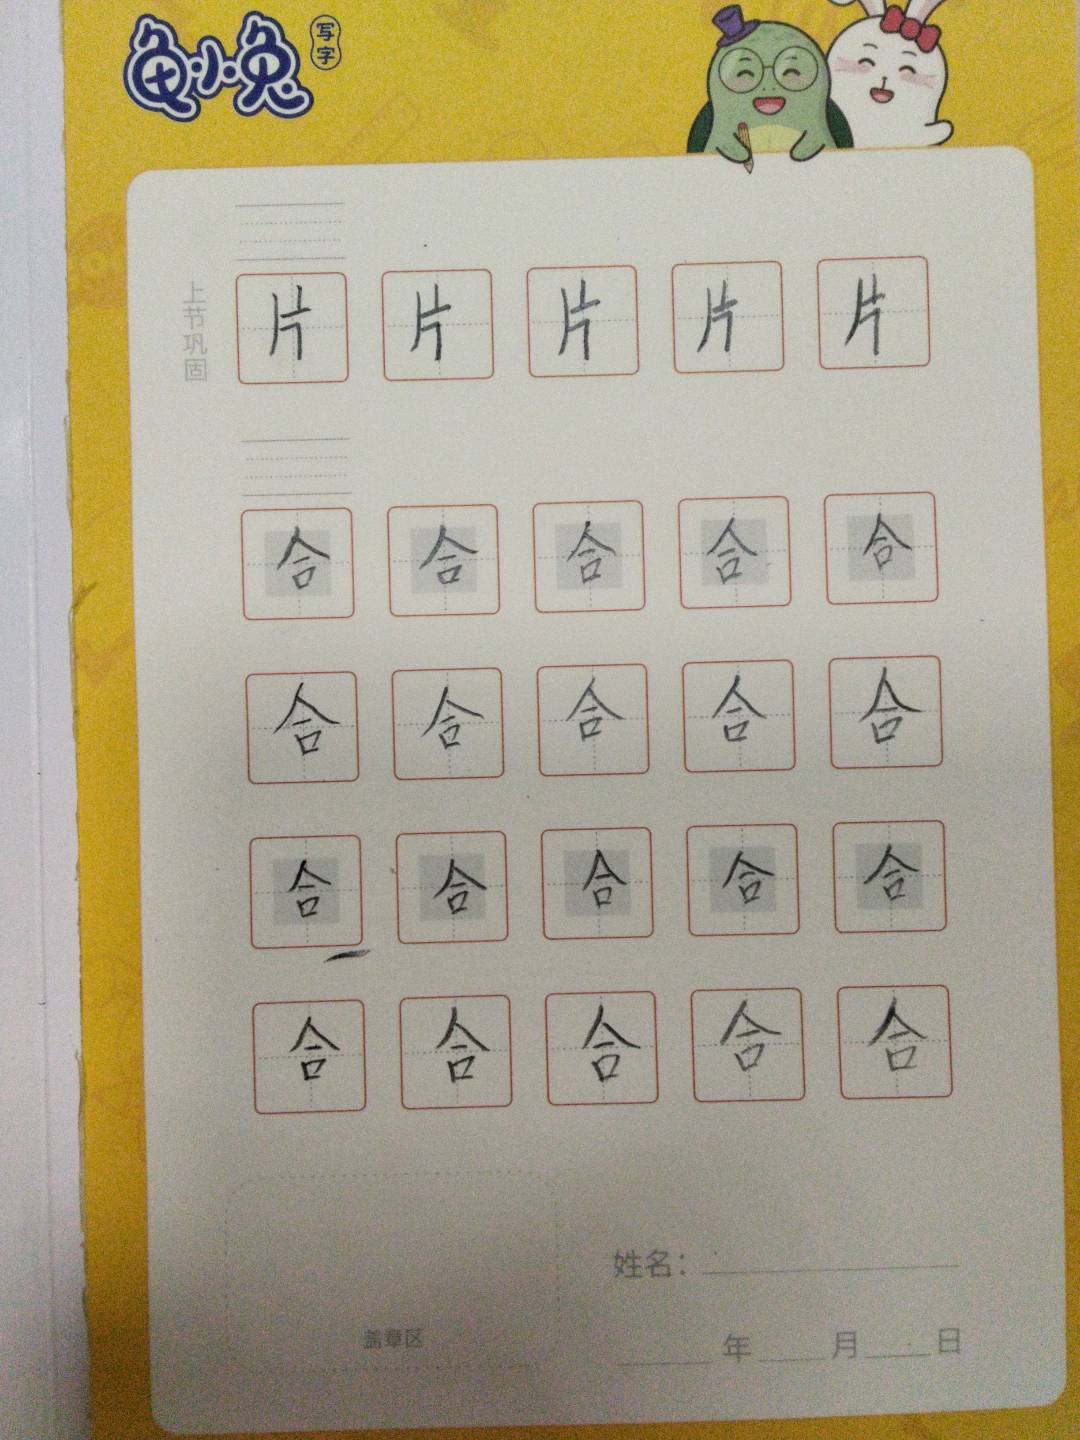 龟小兔
写字
上节巩固
片 片 片 片 片
合 合 合 合 合
合 合 合 合 合
合 合 合 合 合
合 合 合 合 合
姓名：
盖章区
年 月 日